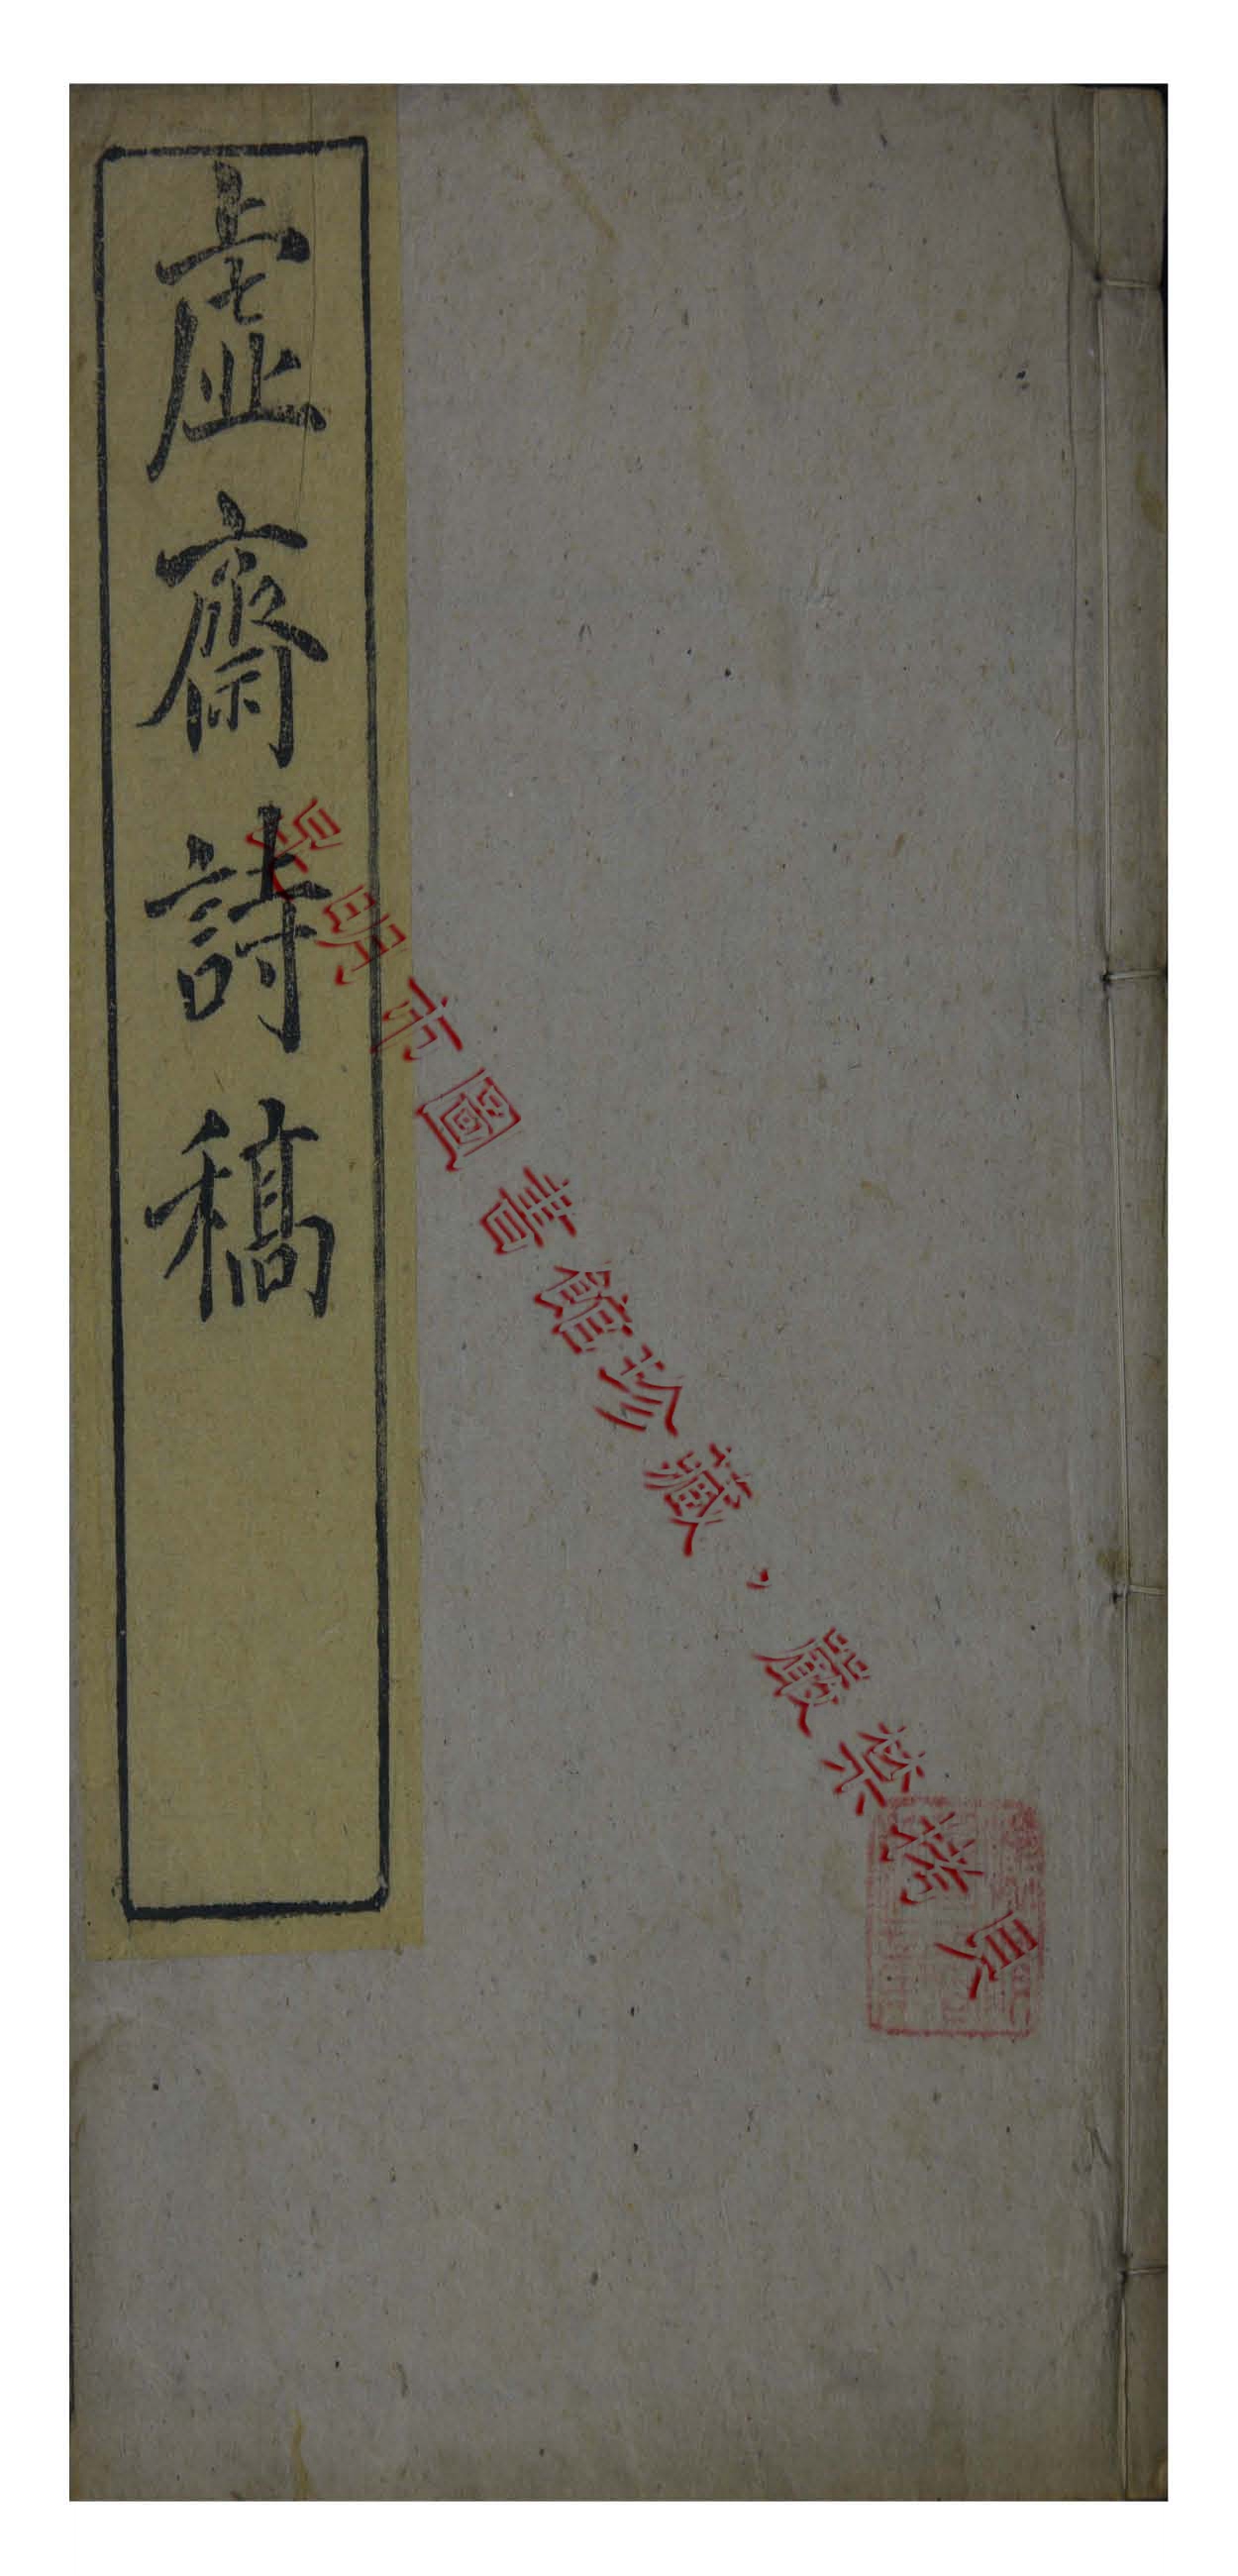 虛齋詩稿
昆明市圖書館珍藏，嚴禁拷貝